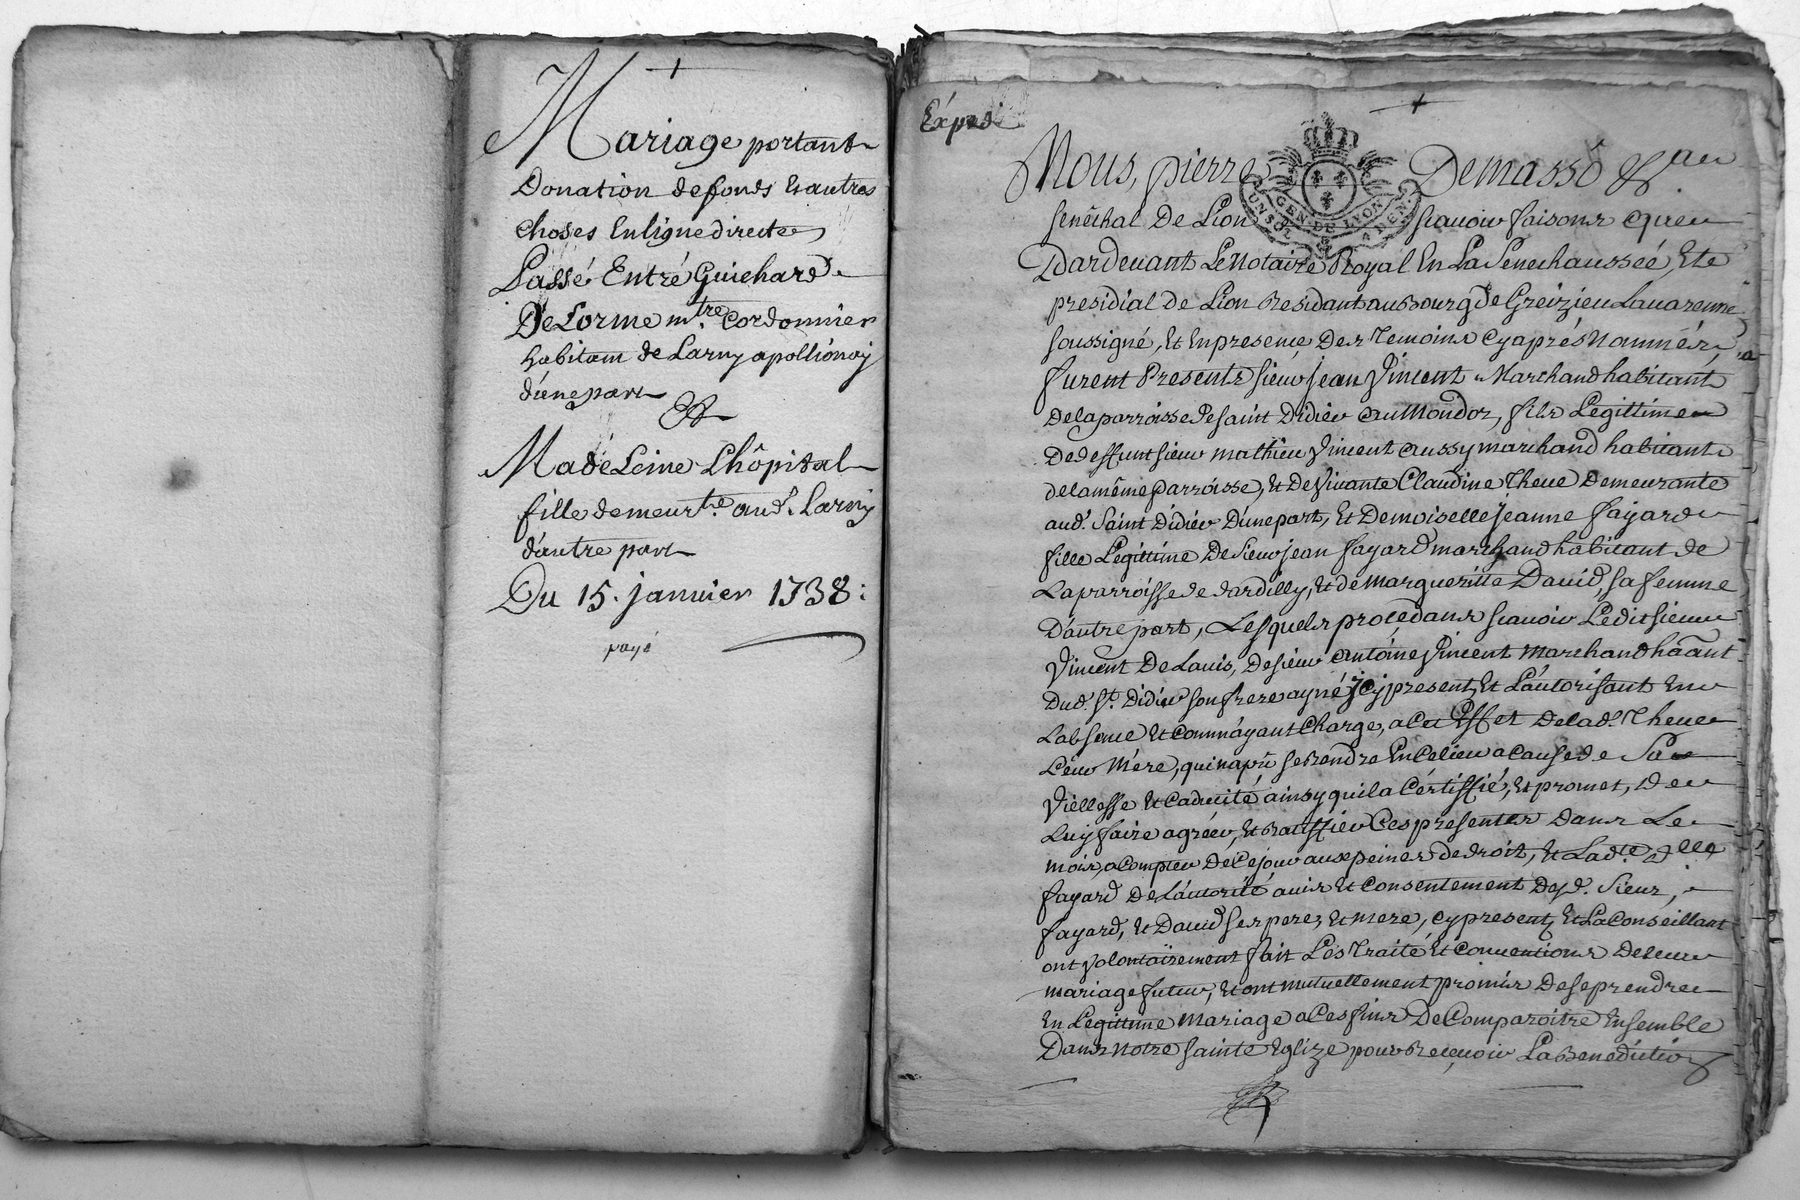 Mariage portant
Donation de fonds Et autres
choses En ligne directe
Passé Entré Guichard
DeLorme mtre. Cordonnier
habitant de Larny apollionay
d'une part
&
Madeleine Lhôpital
fille demeurte. aud. Larny
d'autre part
Du 15. janvier 1738:
payé
Expedi
Nous, pierre Demasso &a
senêchal De Lion scavoir faisons que
Pardevant Le Notaire Royal En La Senechaussée, Et
presidial de Lion Residant au Bourg de Greizieu Lavarenne
soussigné, Et En presence Des Temoins Cy aprés Nommés,
furent Presents sieur jean Vincent Marchand habitant
de la parroisse de saint Didier au Mondor, fils Légittime
De deffunt sieur mathieu Vincent aussy marchand habitant
de la même Parroisse, Et De Vivante Claudine Theve Demeurante
aud. Saint Didier D'une part, Et Demoiselle jeanne fayard
fille Légittime De Sieur jean fayard marchand habitant de
La parroisse de dardilly, Et de margueritte David, sa femme
D'autre part, Lesquels procedans scavoir Ledit sieur
Vincent De L'avis, De sieur antoine Vincent marchand hâant
Dud. St. Didier son frere ayné jcy present, Et L'autorisant En
Labsence Et Comm'ayant Charge, a Cet Effet De lad. Theve
Leur Mére, qui n'a pû se Rendre En Ce lieu a Cause de Sa
Viéllesse Et Caducité ainsy qu'il a Cértiffié, Et promet, De
Luy faire agréer, Et Ratiffier Ces presentes Dans Le
mois, a Compter De Ce jour aux peines de droit, Et Ladte. dlle.
fayard De L'autorité avis Et Consentement Desd. Sieur,
fayard, Et David ses pere, Et mere, cy present, Et La Conseillant
ont Volontairement fait Les Traité Et Conventions De leur
mariage futur, Et ont mutuellement promis De se prendre
En Légittime Mariage a Ces fins De Comparoitre Ensemble
Dans notre sainte Eglize pour Recevoir La Benediction
GEN. DE LYON